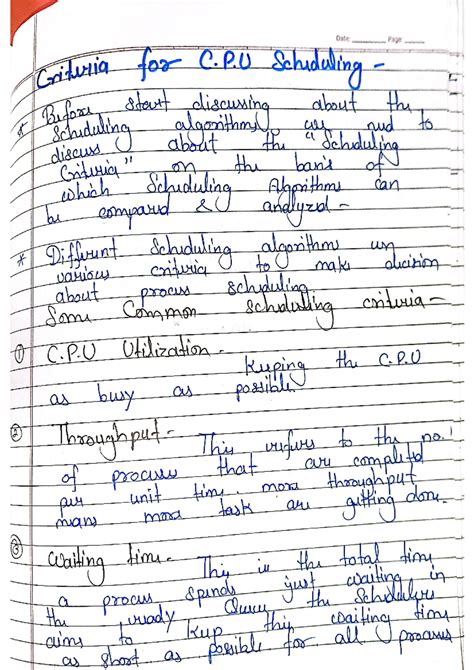 Date: Page
Criteria for C.P.U Scheduling -
* Before start discussing about the
Scheduling algorithms, we need to
discuss about the "Scheduling
Criteria" on the basis of
which Scheduling Algorithms can
be compared & analyzed -
* Different Scheduling algorithms use
various criteria to make decision
about process scheduling.
Some Common scheduling criteria -
① C.P.U Utilization -
Keeping the C.P.U
as busy as possible.
② Throughput -
This refers to the no.
of processes that are completed
per unit time. more throughput
means more task are getting done.
③ Waiting time -
This is the total time
a process spends just waiting in
the ready Queue, the Scheduler
aims to keep this waiting time
as short as possible for all processes